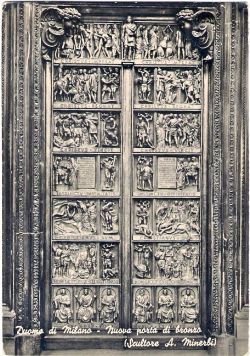 Duomo di Milano - Nuova porta di bronzo
(Scultore A. Minerbi)